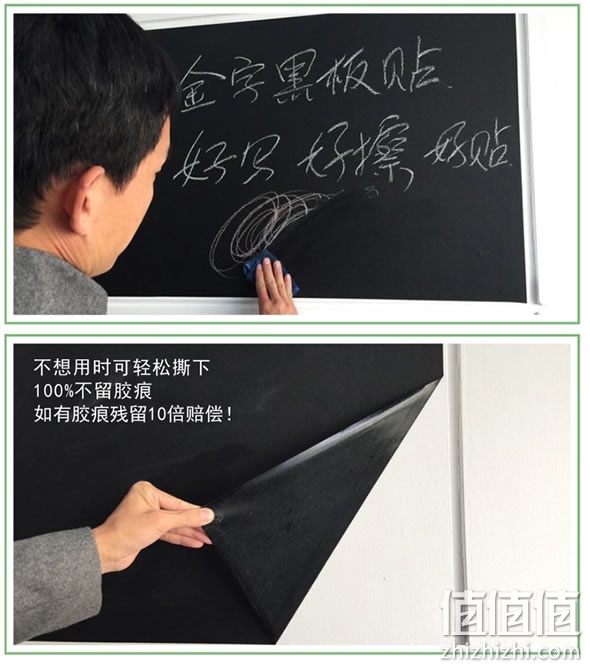 金字黑板贴
好写 好擦 好贴
不想用时可轻松撕下
100%不留胶痕
如有胶痕残留10倍赔偿！
值值值
zhizhizhi.com